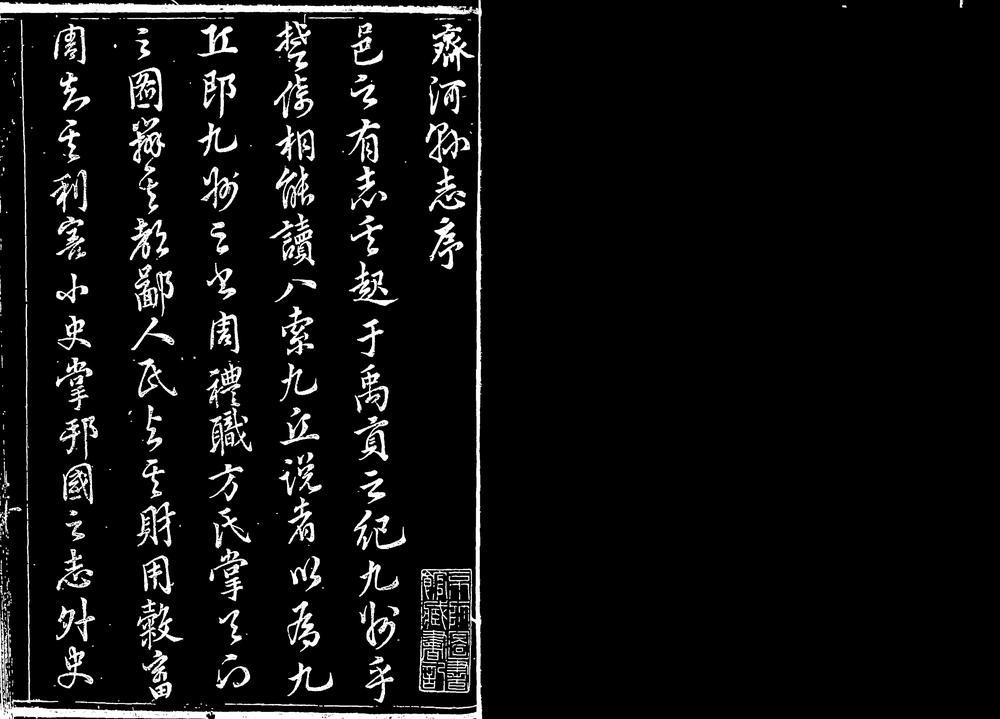 齊河縣志序
邑之有志其起于禹貢之紀九州乎
楚倚相能讀八索九丘說者以為九
丘即九州之書周禮職方氏掌天下
之圖辨其都鄙人民與其財用穀畜
周知其利害小史掌邦國之志外史
京師圖書館藏書記